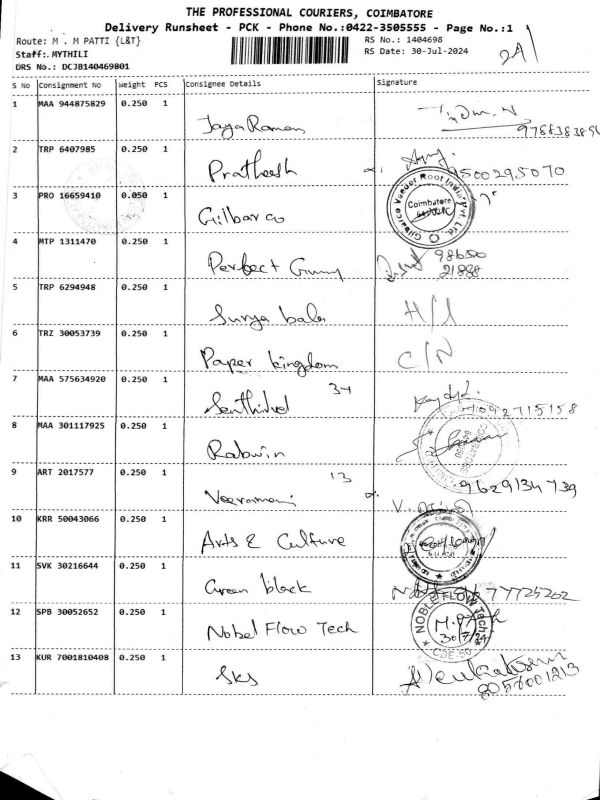 THE PROFESSIONAL COURIERS, COIMBATORE
Delivery Runsheet - PCK - Phone No.:0422-3505555 - Page No.:1
Route: M . M PATTI {L&T}
RS No.: 1404698
Staff:. MYTHILI
RS Date: 30-Jul-2024
DRS No.: DCJB140469801
S No Consignment No Weight PCS Consignee Details Signature
1 MAA 944875829 0.250 1 JayaRaman
2 TRP 6407985 0.250 1 Pratheesh 9500295070
3 PRO 16659410 0.050 1 Gilbarco
Gilbarco Veeder Root India Pvt. Ltd. Coimbatore
4 MTP 1311470 0.250 1 Perfect 98650
21888
5 TRP 6294948 0.250 1 Surya bala
6 TRZ 30053739 0.250 1 Paper kingdom C/N
7 MAA 575634920 0.250 1 Senthilvel 34
8 MAA 301117925 0.250 1 Rabwin
9 ART 2017577 0.250 1 Veeramani 13 9629134739
10 KRR 50043066 0.250 1 Arts & Culture
11 SVK 30216644 0.250 1 Green black
12 SPB 30052652 0.250 1 Nobel Flow Tech
NOBLE FLOW Tech CBE-50
30/7/24
13 KUR 7001810408 0.250 1 SKS